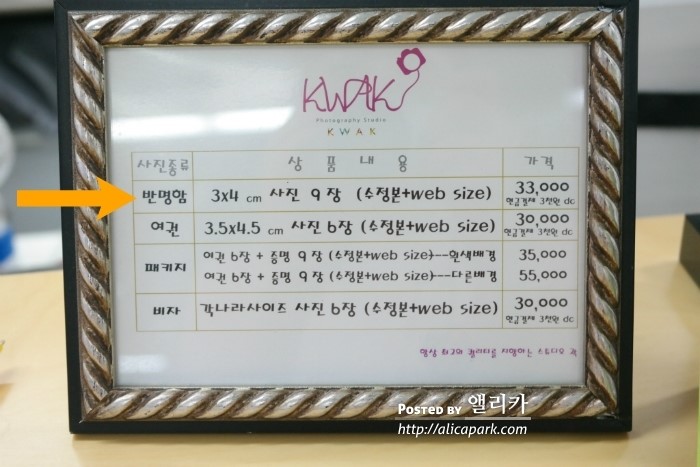 KWAK
Photography Studio
KWAK
사진종류 상품내용 가격
반명함 3x4 cm 사진 9장 (수정본+web size) 33,000
현금결제 3천원 dc
여권 3.5x4.5 cm 사진 6장 (수정본+web size) 30,000
현금결제 3천원 dc
패키지 여권 6장 + 증명 9장 (수정본+web size)--흰색배경 35,000
여권 6장 + 증명 9장 (수정본+web size)--다른배경 55,000
비자 각나라사이즈 사진 6장 (수정본+web size) 30,000
현금결제 3천원 dc
항상 최고의 퀄리티를 지향하는 스튜디오 곽
Posted by 앨리카
http://alicapark.com